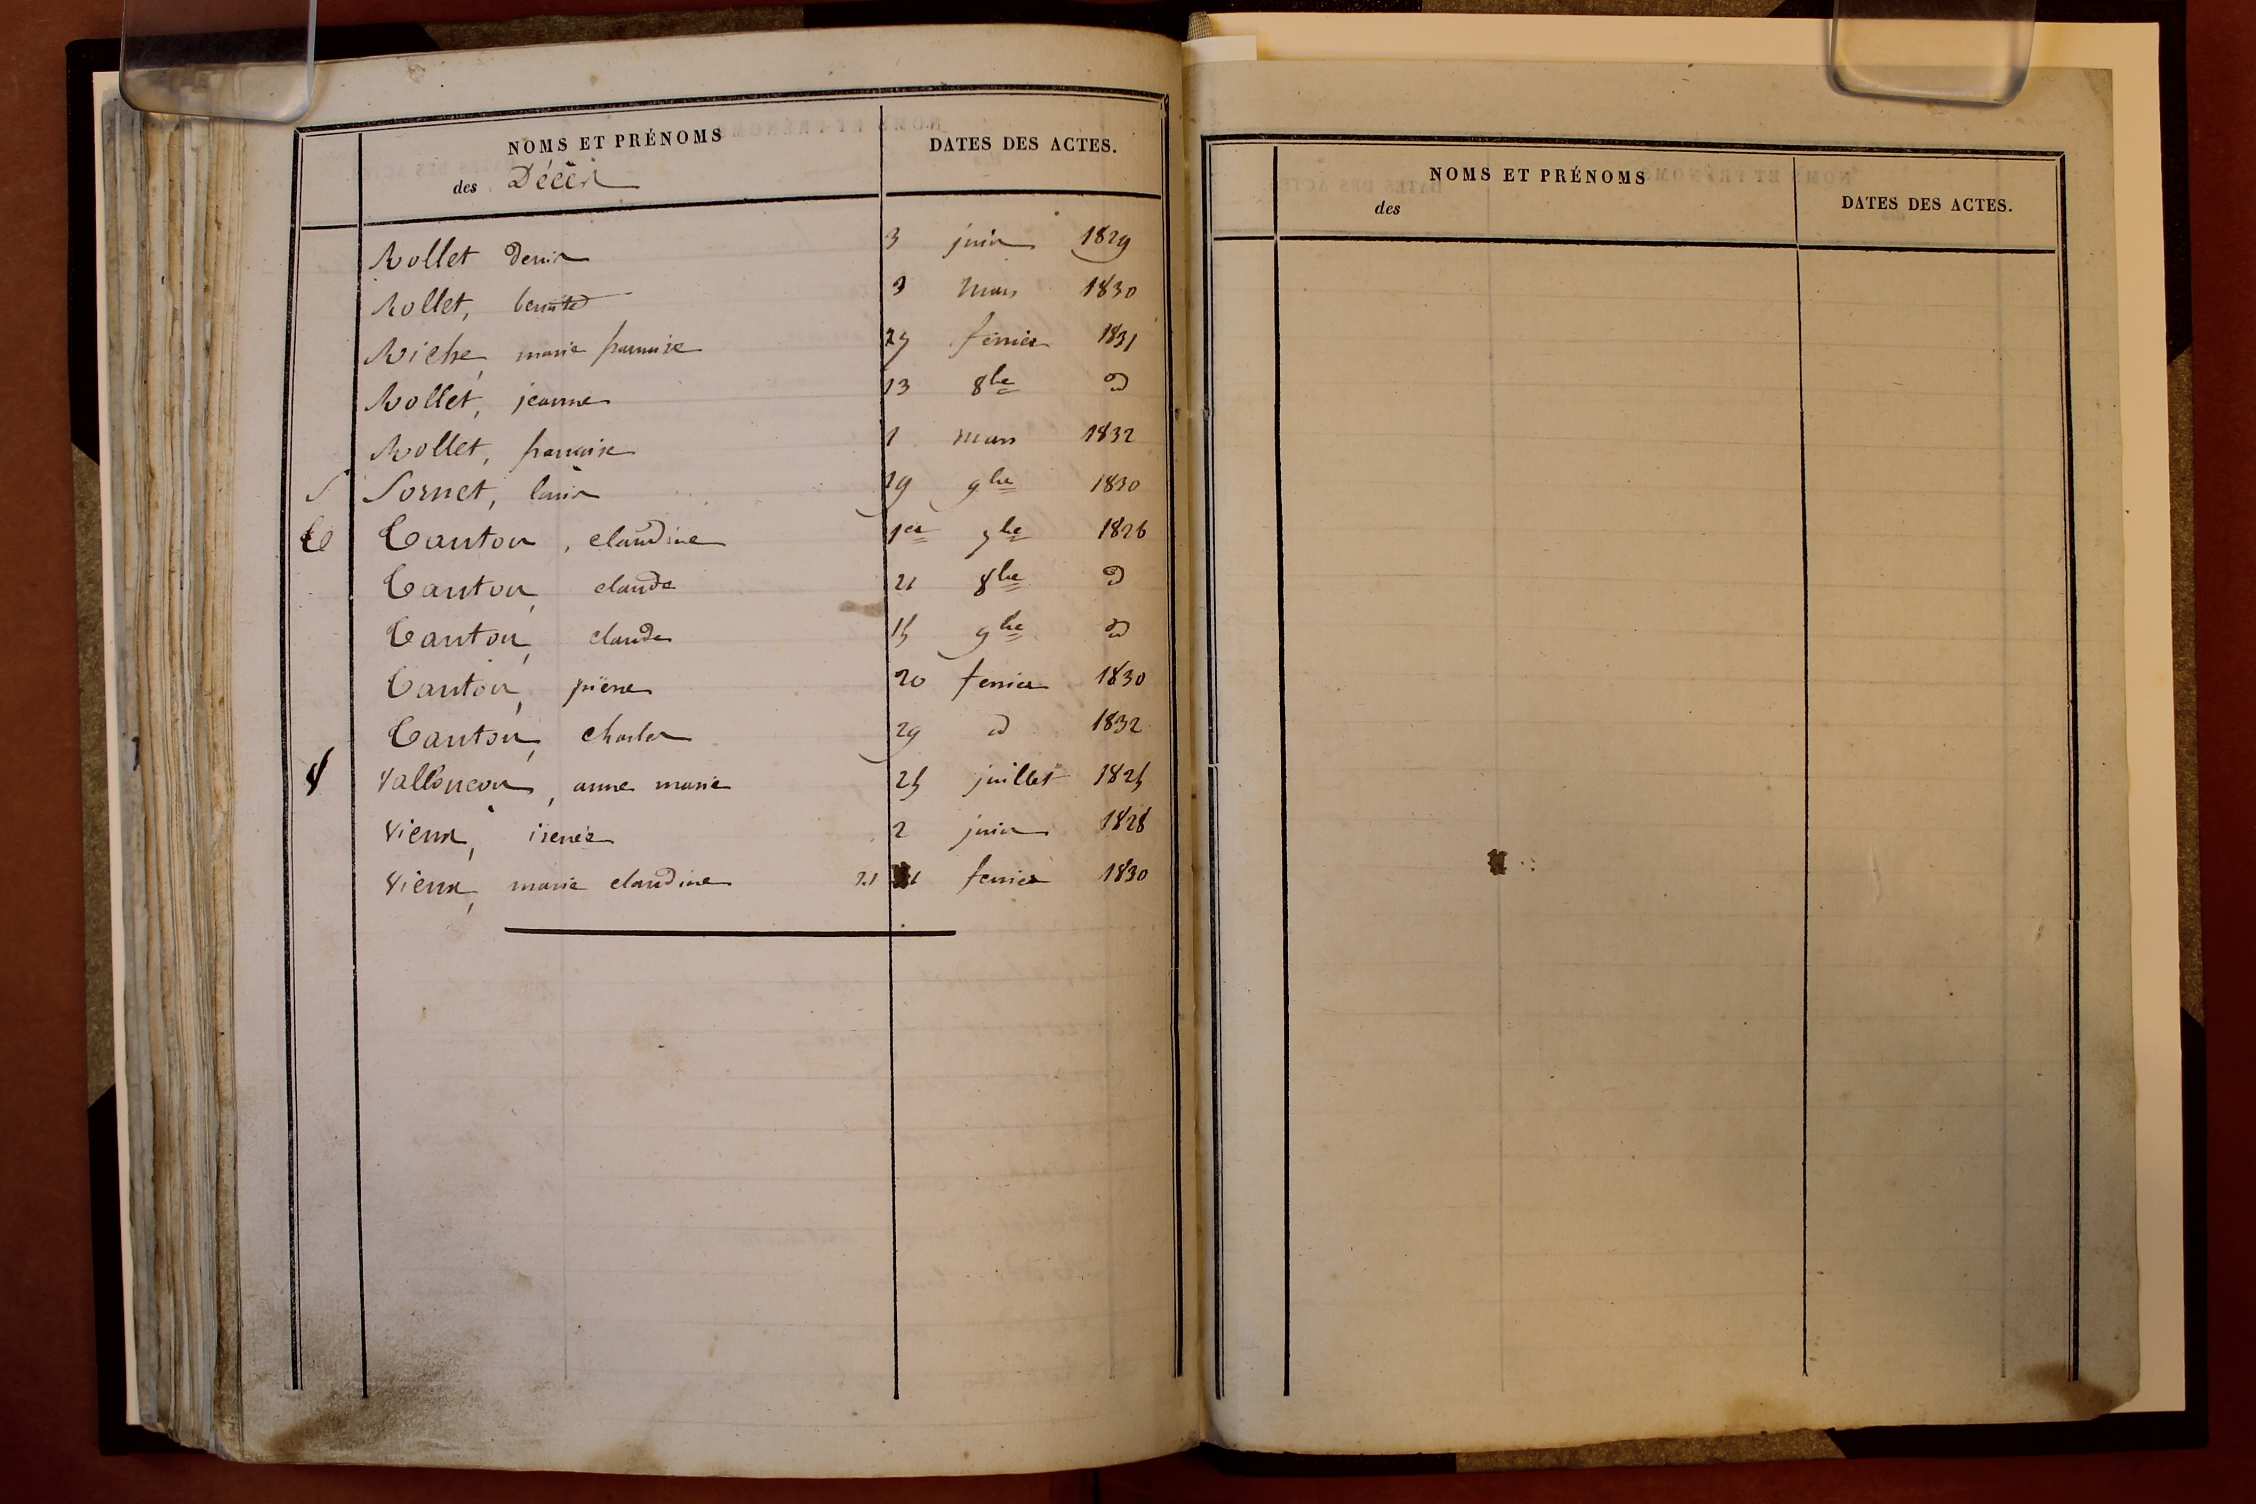 NOMS ET PRÉNOMS
des Décès
DATES DES ACTES.
Rollet denis 3 juin 1829
Rollet, benoite 3 Mars 1830
Riche, marie francoise 27 fevrier 1831
Rollet, jeanne 13 8bre d
Rollet, francoise 1 mars 1832
S Sornet, louis 29 9bre 1830
T Tantou, claudine 1er 7bre 1826
Tantou, claude 21 8bre d
Tantou, claude 15 9bre d
Tantou, pierre 20 fevrier 1830
Tantou, charles 29 d 1832
V Vallencon, anne marie 25 juillet 1825
Vieux, irenée 2 juin 1828
Vieux, marie claudine 21 fevrier 1830
NOMS ET PRÉNOMS
des
DATES DES ACTES.